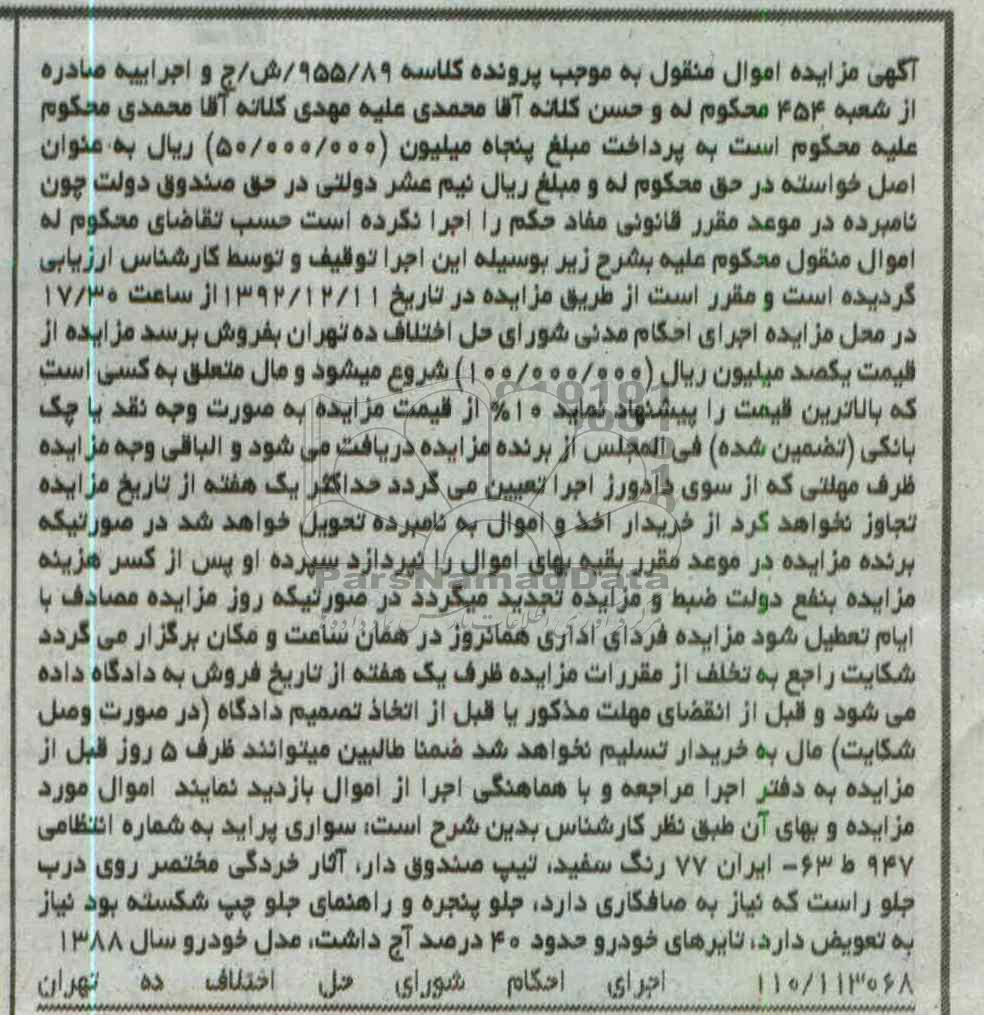 آگهی مزایده اموال منقول به موجب پرونده کلاسه ۹۵۵/۸۹/ش/ج و اجراییه صادره
از شعبه ۴۵۴ محکوم له و حسن کلاته آقا محمدی علیه مهدی کلاته آقا محمدی محکوم
علیه محکوم است به پرداخت مبلغ پنجاه میلیون (۵۰/۰۰۰/۰۰۰) ریال به عنوان
اصل خواسته در حق محکوم له و مبلغ ریال نیم عشر دولتی در حق صندوق دولت چون
نامبرده در موعد مقرر قانونی مفاد حکم را اجرا نکرده است حسب تقاضای محکوم له
اموال منقول محکوم علیه بشرح زیر بوسیله این اجرا توقیف و توسط کارشناس ارزیابی
گردیده است و مقرر است از طریق مزایده در تاریخ ۱۳۹۲/۱۲/۱۱ از ساعت ۱۷/۳۰
در محل مزایده اجرای احکام مدنی شورای حل اختلاف ده تهران بفروش برسد مزایده از
قیمت یکصد میلیون ریال (۱۰۰/۰۰۰/۰۰۰) شروع میشود و مال متعلق به کسی است
که بالاترین قیمت را پیشنهاد نماید ۱۰% از قیمت مزایده به صورت وجه نقد یا چک
بانکی (تضمین شده) فی المجلس از برنده مزایده دریافت می شود و الباقی وجه مزایده
ظرف مهلتی که از سوی دادورز اجرا تعیین می گردد حداکثر یک هفته از تاریخ مزایده
تجاوز نخواهد کرد از خریدار اخذ و اموال به نامبرده تحویل خواهد شد در صورتیکه
برنده مزایده در موعد مقرر بقیه بهای اموال را نپردازد سپرده او پس از کسر هزینه
ParsNamadData
مزایده بنفع دولت ضبط و مزایده تجدید میگردد در صورتیکه روز مزایده مصادف با
ایام تعطیل شود مزایده فردای اداری همانروز در همان ساعت و مکان برگزار می گردد
شکایت راجع به تخلف از مقررات مزایده ظرف یک هفته از تاریخ فروش به دادگاه داده
می شود و قبل از انقضای مهلت مذکور یا قبل از اتخاذ تصمیم دادگاه (در صورت وصل
شکایت) مال به خریدار تسلیم نخواهد شد ضمنا طالبین میتوانند ظرف ۵ روز قبل از
مزایده به دفتر اجرا مراجعه و با هماهنگی اجرا از اموال بازدید نمایند اموال مورد
مزایده و بهای آن طبق نظر کارشناس بدین شرح است: سواری پراید به شماره انتظامی
۹۴۷ ط ۶۳- ایران ۷۷ رنگ سفید، تیپ صندوق دار، آثار خردگی مختصر روی درب
جلو راست که نیاز به صافکاری دارد، جلو پنجره و راهنمای جلو چپ شکسته بود نیاز
به تعویض دارد، تایرهای خودرو حدود ۴۰ درصد آج داشت، مدل خودرو سال ۱۳۸۸
۱۱۰/۱۱۳۰۶۸ اجرای احکام شورای حل اختلاف ده تهران